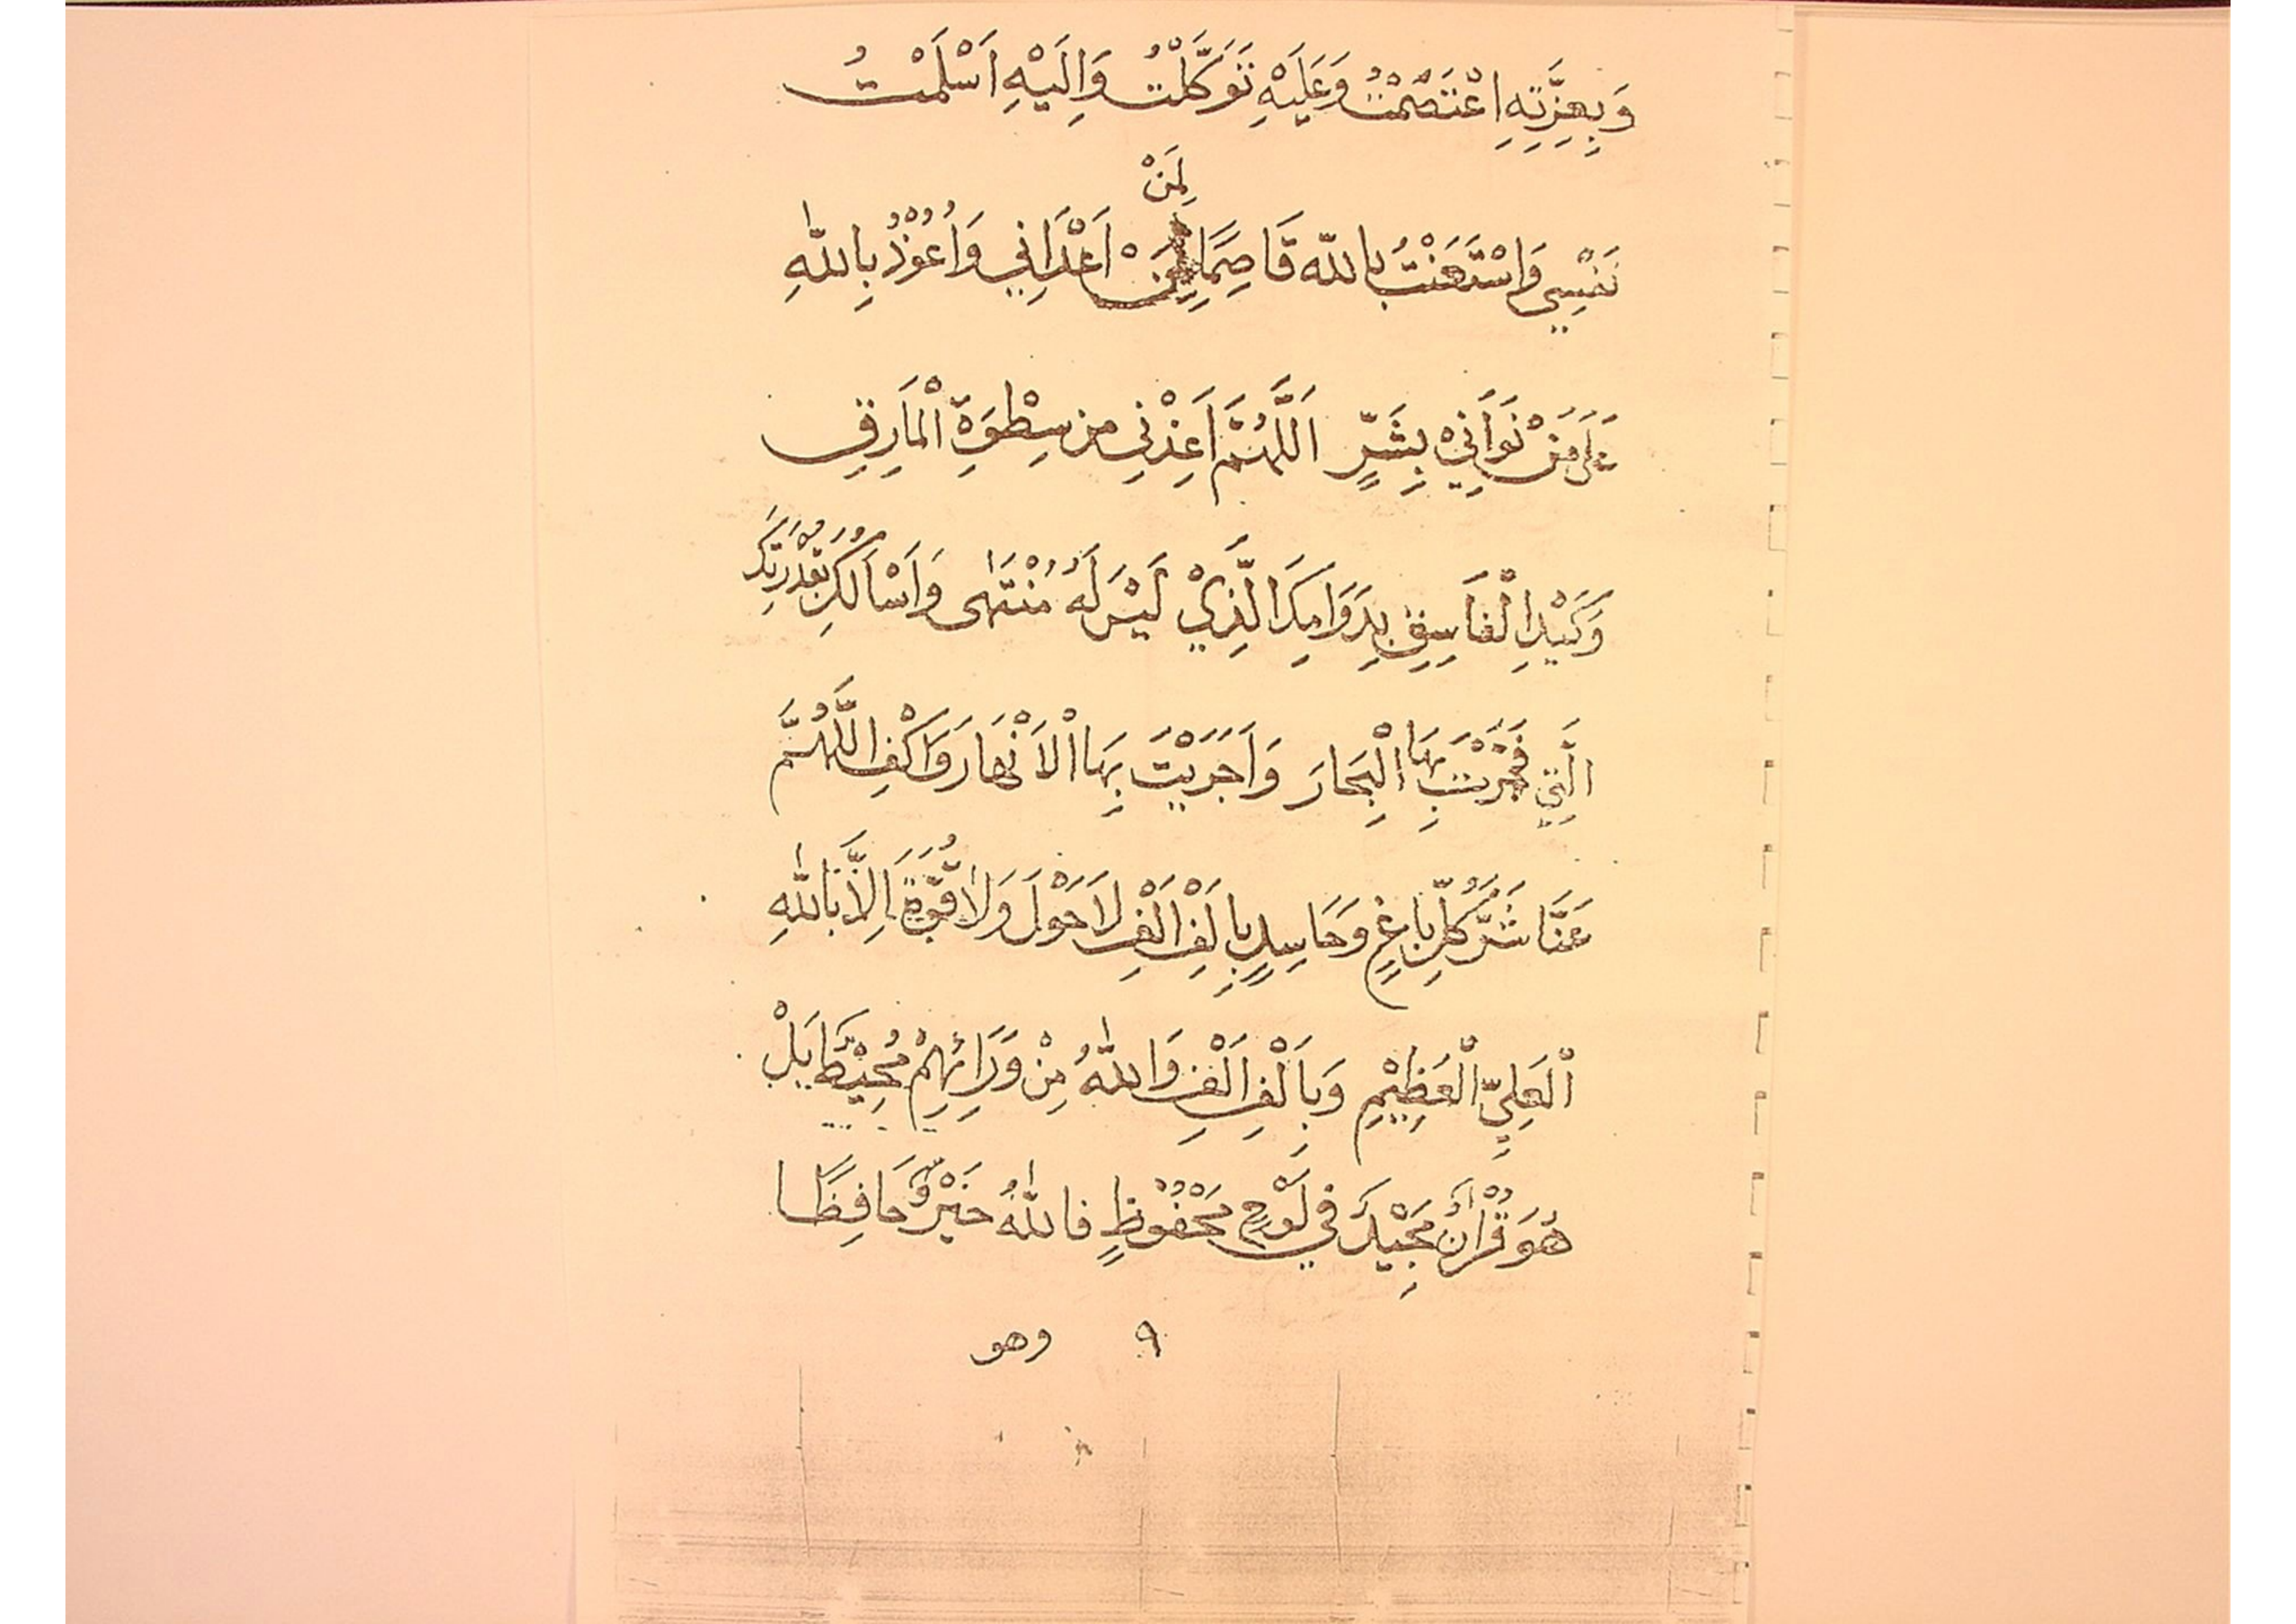 وَبِعِزَّتِهِ اِعْتَصَمْتُ وَعَلَيْهِ تَوَكَّلْتُ وَاِلَيْهِ اَسْلَمْتُ
لِمَنْ
نَفْسِي وَاسْتَعَنْتُ بِاللّه قَاصِمًا اَعْدَائِي وَاَعُوْذُ بِاللّٰهِ
عَلَى مَنْ نَوَانِيْ بِشَرٍّ اَللَّهُمَّ اَعِذْنِي مِن سِطْوَةِ الْمَارِقِ
وَكَيْدِ الْفَاسِقِ بِدَوَامِكَ الَّذِيْ لَيْسَ لَهُ مُنْتَهٰى وَاَسْاَلُكَ بِقُدْرَتِكَ
الَّتِي فَجَّرْتَ بِهَا الْبِحَارَ وَاَجْرَيْتَ بِهَا الْاَنْهَارَ وَاكْفِ اللَّهُمَّ
عَنَّا شَرَّ كُلِّ بَاغٍ وَحَاسِدٍ بِاَلْفِ اَلْفِ لَاحَوْلَ وَلَا قُوَّةَ اِلَّا بِاللّٰهِ
الْعَلِيِّ الْعَظِيْمِ وَبِاَلْفِ اَلْفِ وَاللّٰهُ مِنْ وَرَائِهِمْ مُحِيْطٌ بَلْ
هُوَ قُرْاٰنٌ مَجِيْدٌ فِي لَوْحٍ مَحْفُوْظٍ فَاللّٰهُ خَيْرٌ حَافِظًا
٩ وهو